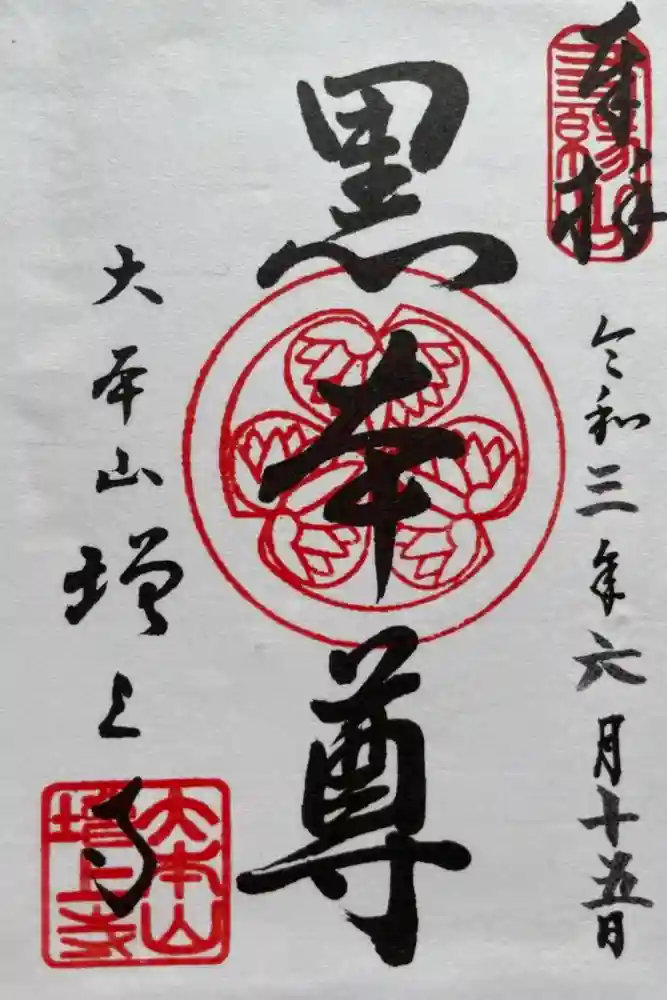 奉拝
令和三年六月十五日
黒本尊
大本山増上寺
大本山
増上寺